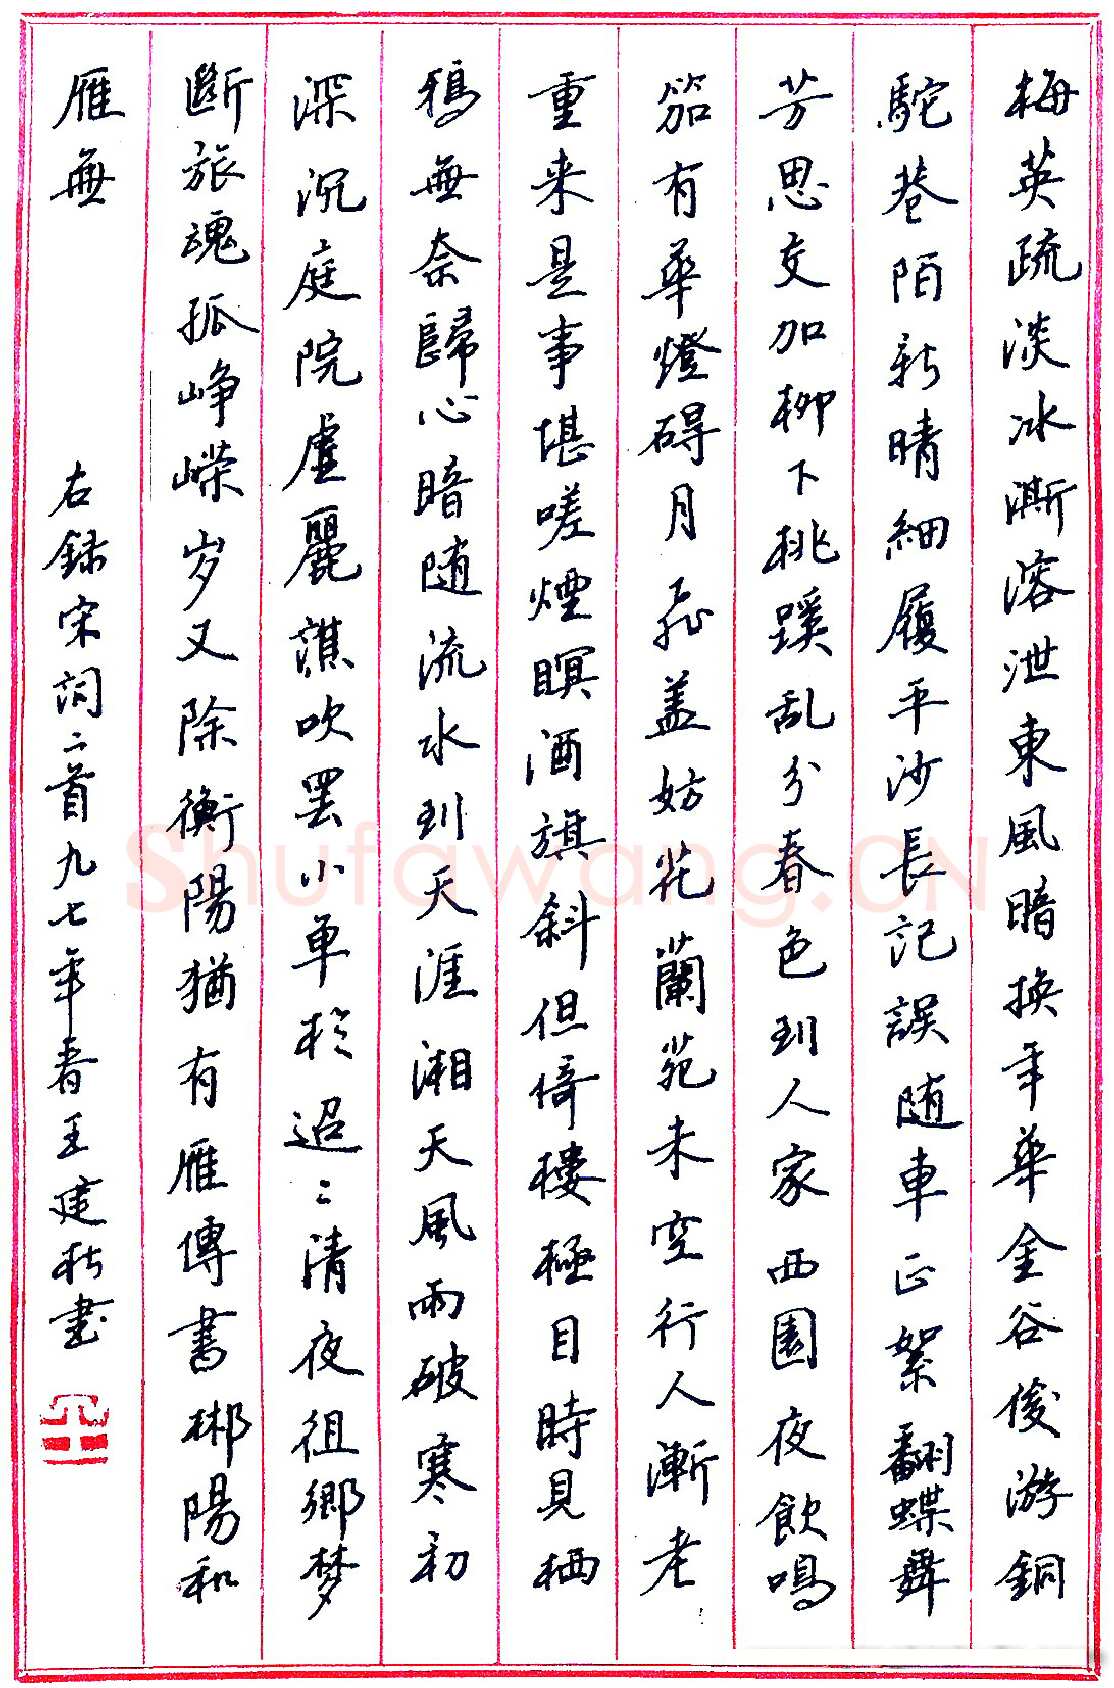 梅英疏淡冰澌溶泄東風暗换年華金谷俊游銅
駝巷陌新晴細履平沙長記誤随車正絮翻蝶舞
芳思交加柳下桃蹊乱分春色到人家西園夜飲鳴
笳有華燈碍月飛盖妨花蘭苑未空行人漸老
重来是事堪嗟煙暝酒旗斜但倚樓極目時見栖
鴉無奈歸心暗随流水到天涯湘天風雨破寒初
深沉庭院虚麗譙吹罢小單於迢迢清夜徂鄉梦
斷旅魂孤峥嵘岁又除衡陽猶有雁傳書郴陽和
雁無
右録宋詞二首九七年春王建書
Shufawang.CN